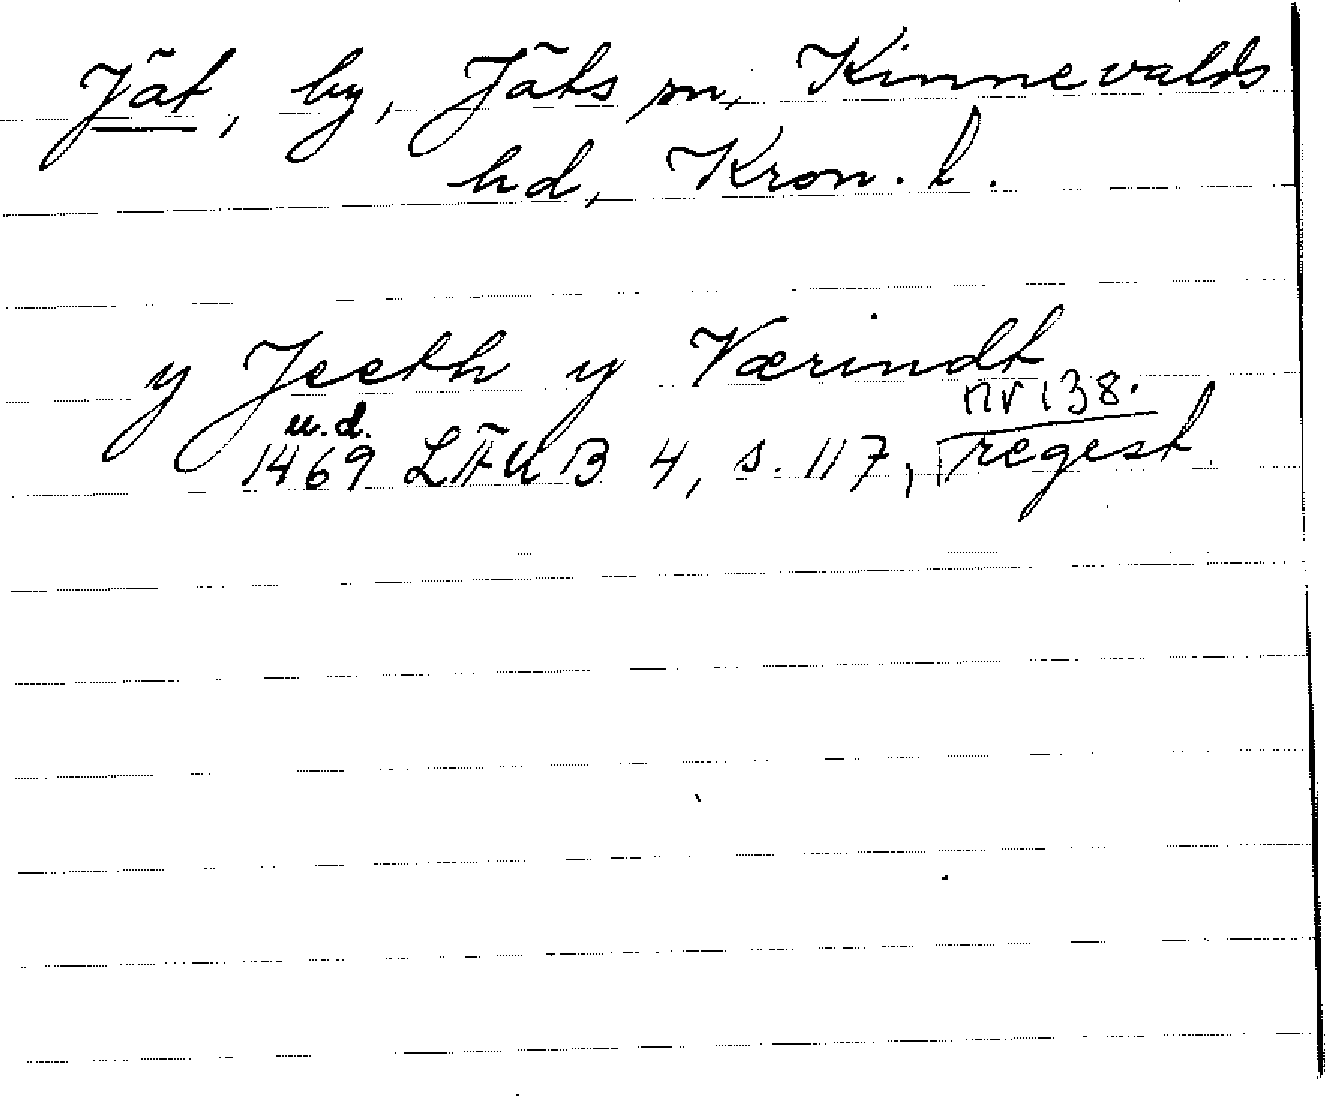 Jät, by, Jäts sn, Kinnevalds
hd, Kron. l.
y Jeeth y Værindt
nr 138.
u.d.
1469 LFUB 4, s. 117, regest.